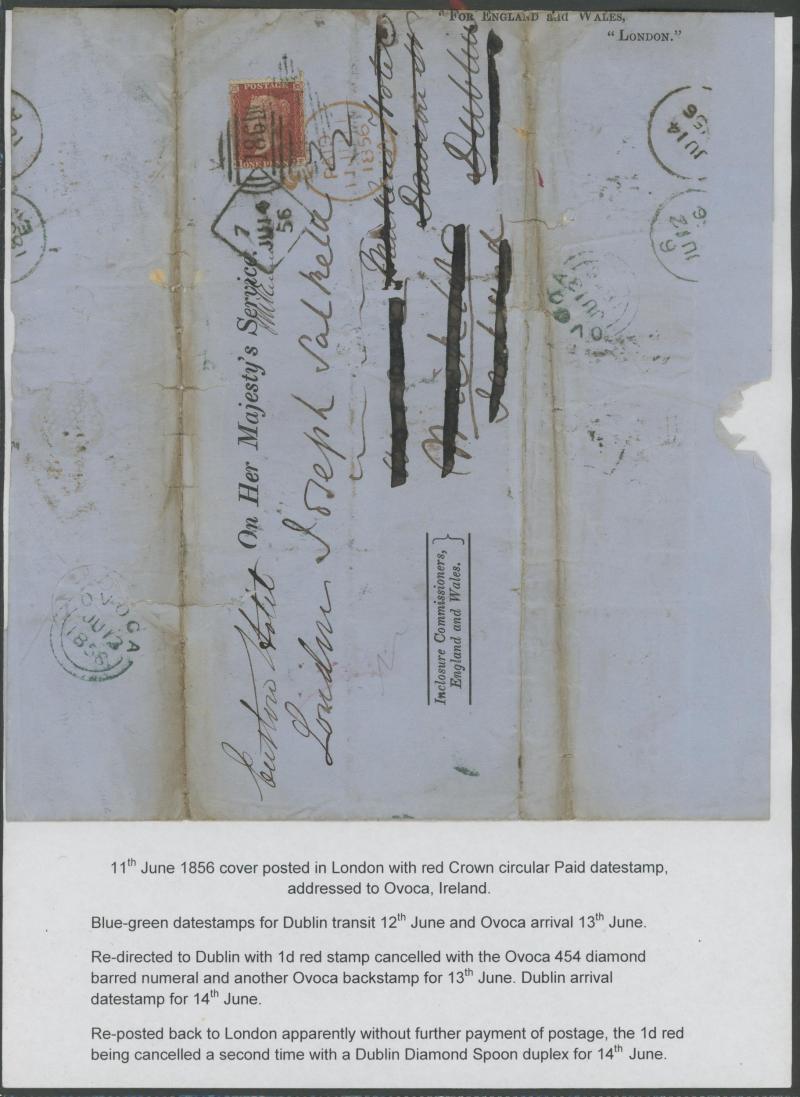 "For England and Wales,
"London."
POSTAGE
ONE PENNY
186
PAID
11 JU
1856
7
JU14
56
On Her Majesty's Service.
Joseph Salkeld
Hotel
Dawson St
Dublin
Ireland
Hotel
London
Inclosure Commissioners,
England and Wales.
JU14
56
JU12
OVOCA
JU13
OVOCA
JU13
1856
11th June 1856 cover posted in London with red Crown circular Paid datestamp,
addressed to Ovoca, Ireland.
Blue-green datestamps for Dublin transit 12th June and Ovoca arrival 13th June.
Re-directed to Dublin with 1d red stamp cancelled with the Ovoca 454 diamond
barred numeral and another Ovoca backstamp for 13th June. Dublin arrival
datestamp for 14th June.
Re-posted back to London apparently without further payment of postage, the 1d red
being cancelled a second time with a Dublin Diamond Spoon duplex for 14th June.